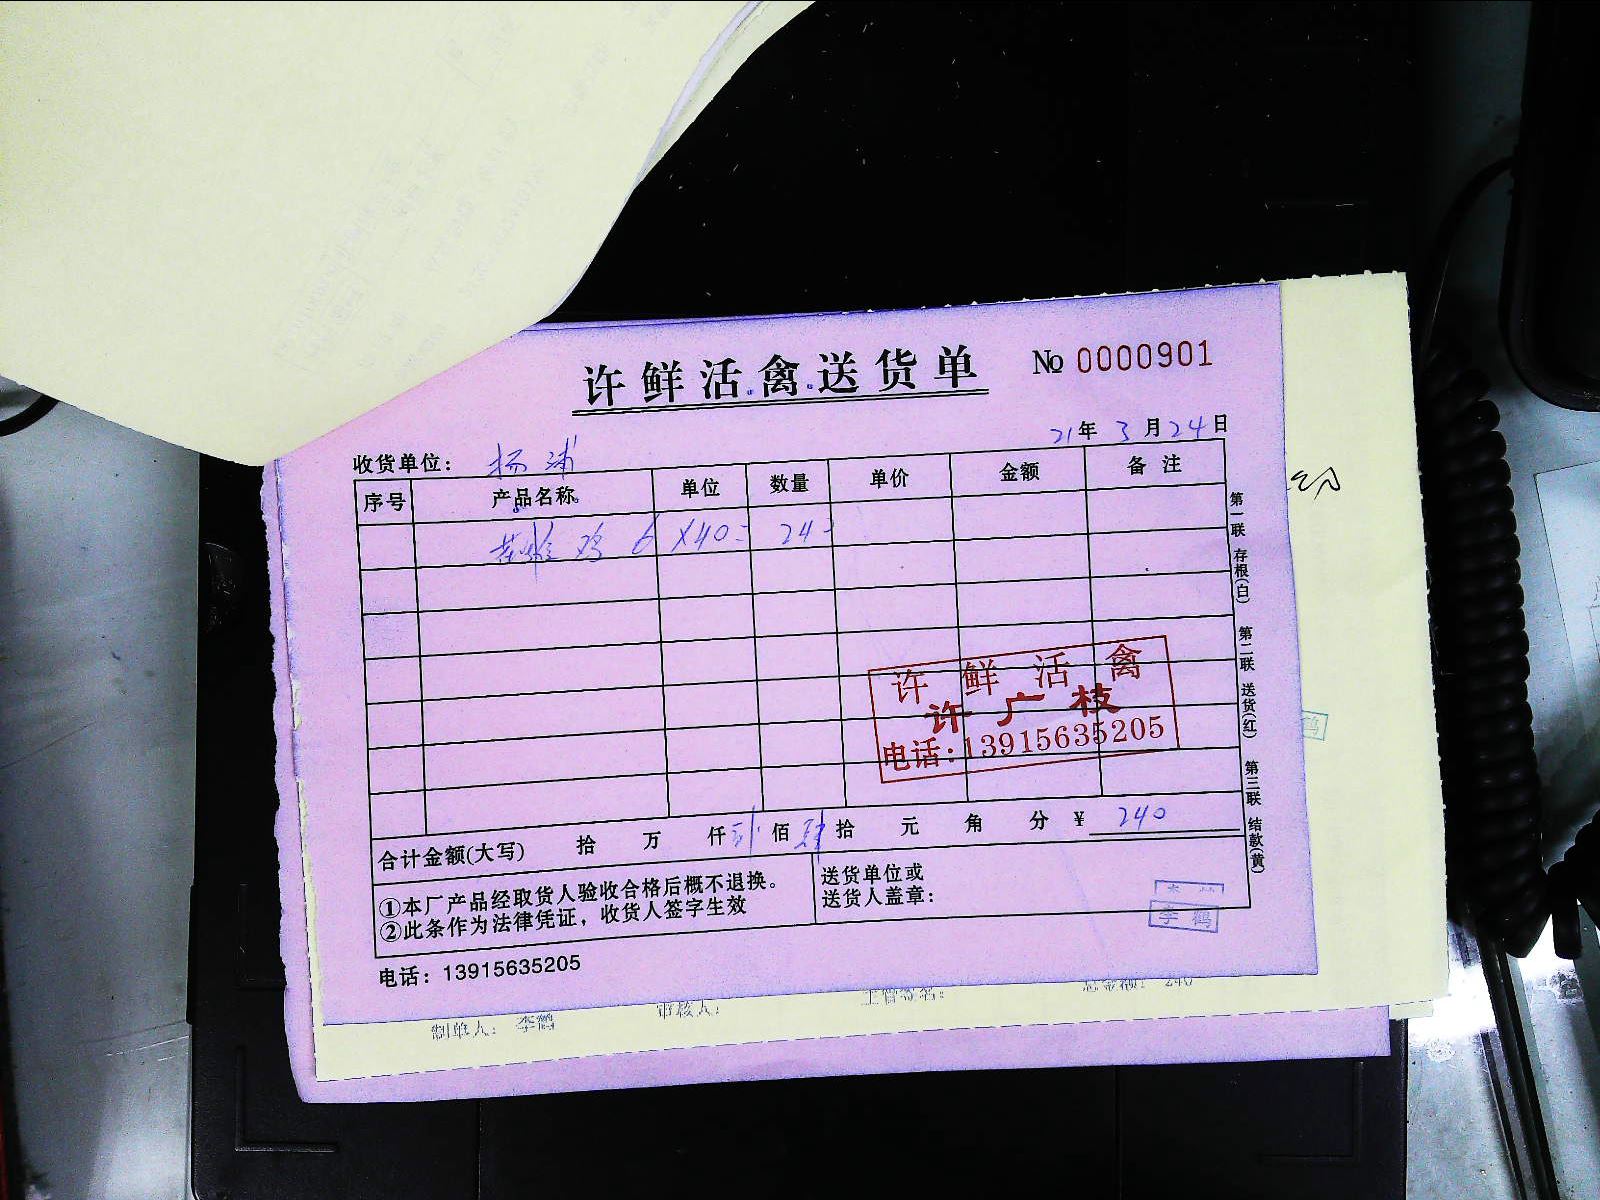 许鲜活禽送货单 № 0000901
21年 3月24日
收货单位： 杨浦
序号 产品名称 单位 数量 单价 金额 备注
鸡 6 X40= 24-
第一联 存根(白) 第二联 送货(红) 第三联 结款(黄)
许鲜活禽
许广枝
电话:13915635205
合计金额(大写) 拾 万 仟 贰佰 肆拾 元 角 分 ¥ 240
①本厂产品经取货人验收合格后概不退换。
②此条作为法律凭证，收货人签字生效
送货单位或
送货人盖章：
李鹤
电话：13915635205
制单人: 李鹤 审核人: 主管签名: 总金额: 240